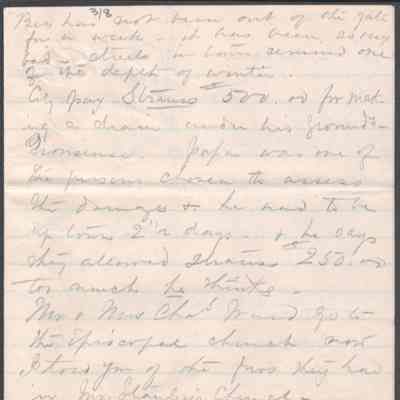 3/8
Bess has not been out of the gate
for a week - it has been so very
bad - streets in town remind one
of the depth of winter.
City pay Strauss $500.00 for mak-
ing a drain under his ground -
Nonsense. Papa was one of
the persons chosen to assess
the damages & he had to be
up town 2 1/2 days - & he says
they allowed Strauss $250.00
too much he thinks -
Mr & Mrs Chas Ward go to
the Episcopal church now
I told you of the fuss they had
in Mr. Church -